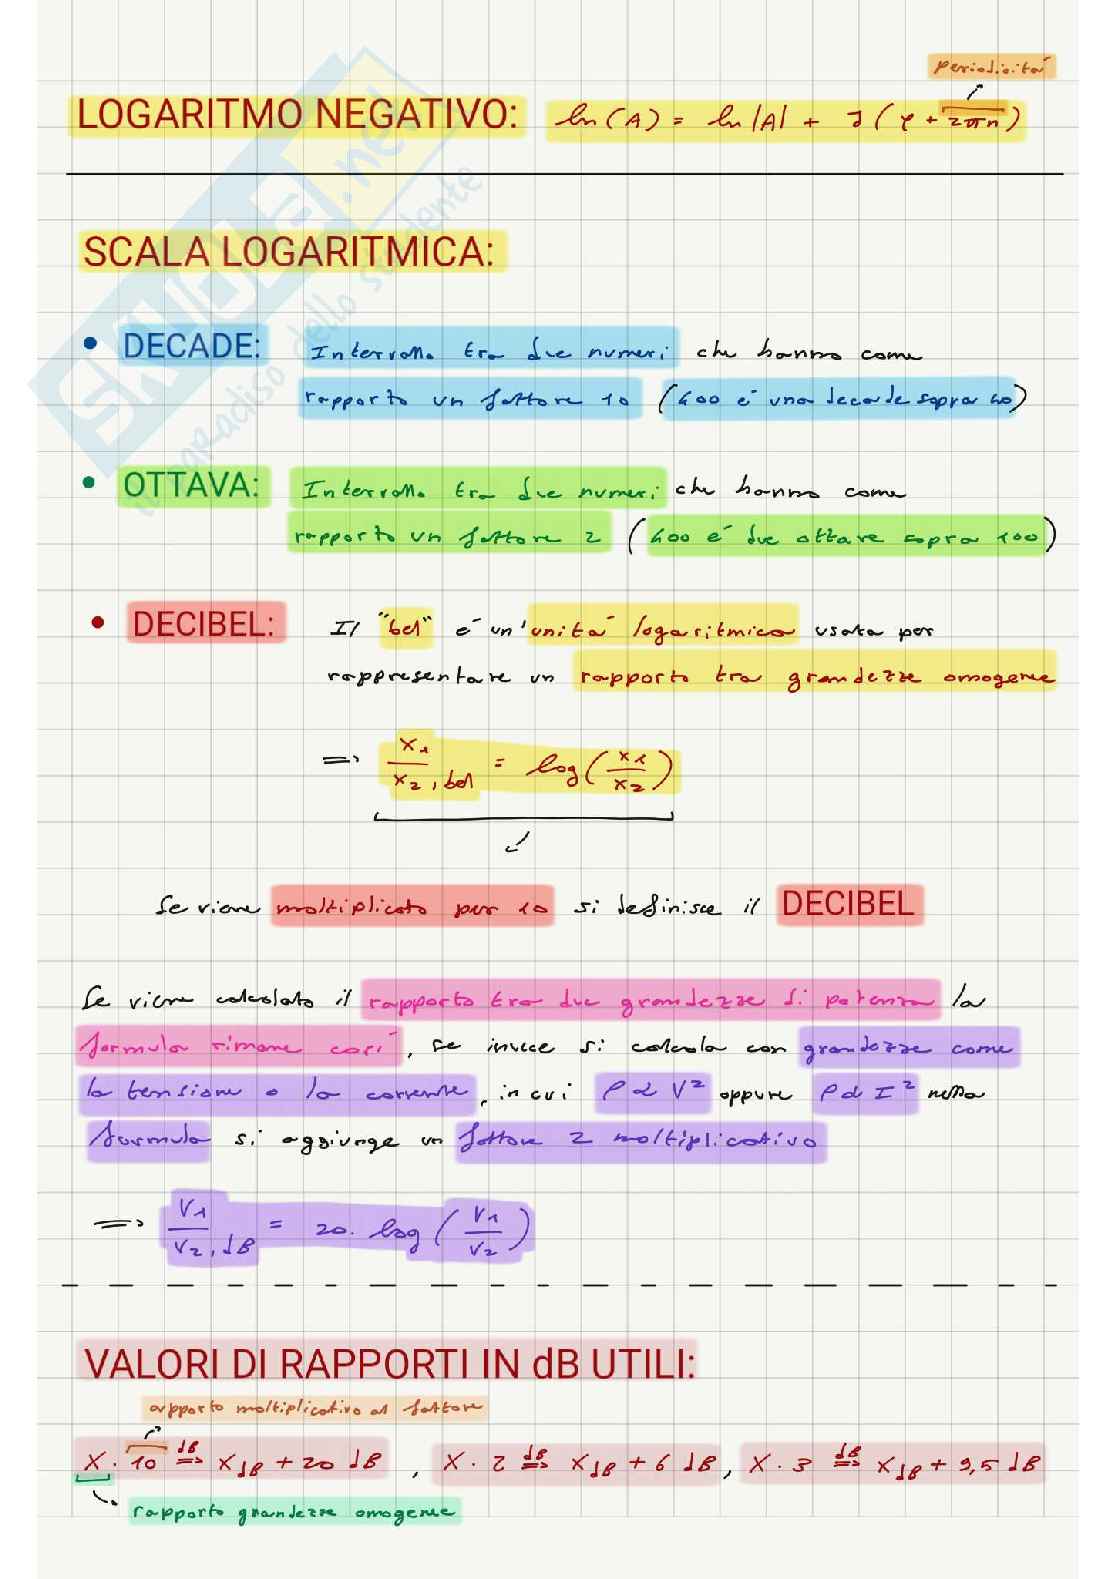 periodicità
LOGARITMO NEGATIVO: ln(A) = ln|A| + J(φ + 2πn)
SKUOLA.net
il paradiso dello studente
SCALA LOGARITMICA:
• DECADE: Intervallo tra due numeri che hanno come
rapporto un fattore 10 (400 è una decade sopra 40)
• OTTAVA: Intervallo tra due numeri che hanno come
rapporto un fattore 2 (400 è due ottave sopra 100)
• DECIBEL: Il "bel" è un'unità logaritmica usata per
rappresentare un rapporto tra grandezze omogenee
=> x1/x2, bel = log(x1/x2)
Se viene moltiplicato per 10 si definisce il DECIBEL
Se viene calcolato il rapporto tra due grandezze di potenza la
formula rimane così, se invece si calcola con grandezze come
la tensione o la corrente, in cui P ∝ V² oppure P ∝ I² nella
formula si aggiunge un fattore 2 moltiplicativo
=> V1/V2, dB = 20 · log(V1/V2)
VALORI DI RAPPORTI IN dB UTILI:
apporto moltiplicativo al fattore
X · 10 dB=> XdB + 20 dB , X · 2 dB=> XdB + 6 dB, X · 3 dB=> XdB + 9,5 dB
rapporto grandezze omogenee